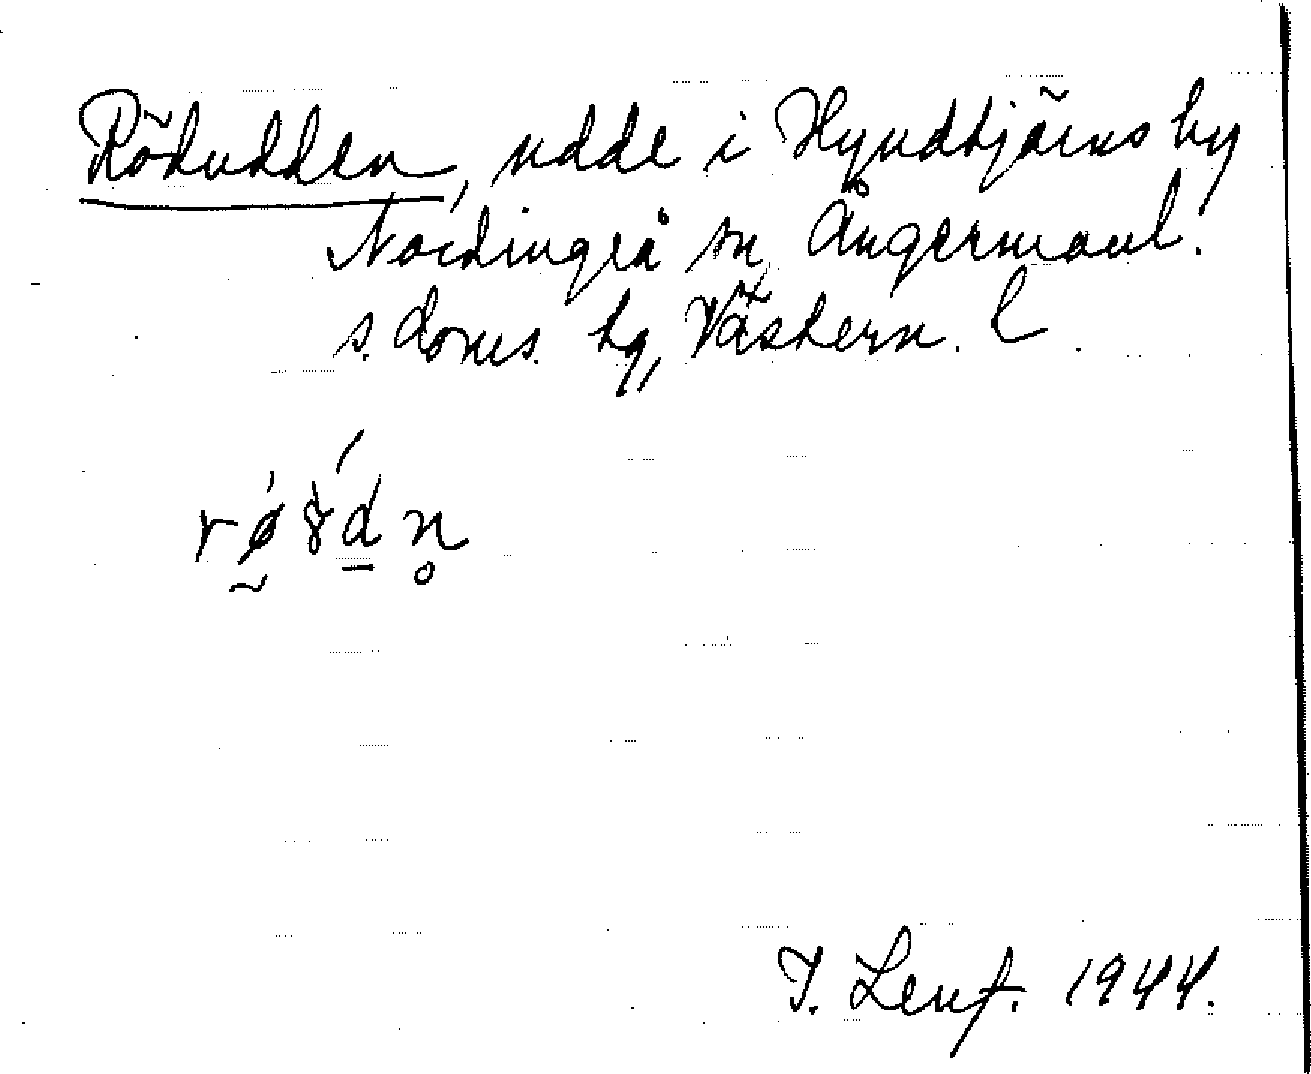 Rödudden, udde i Hyndtjärns by
Nordingrå sn, Ångermanl.
s. doms. hg, Västern. l.
rø̰ɣd̲n̥
I. Lenf. 1944.